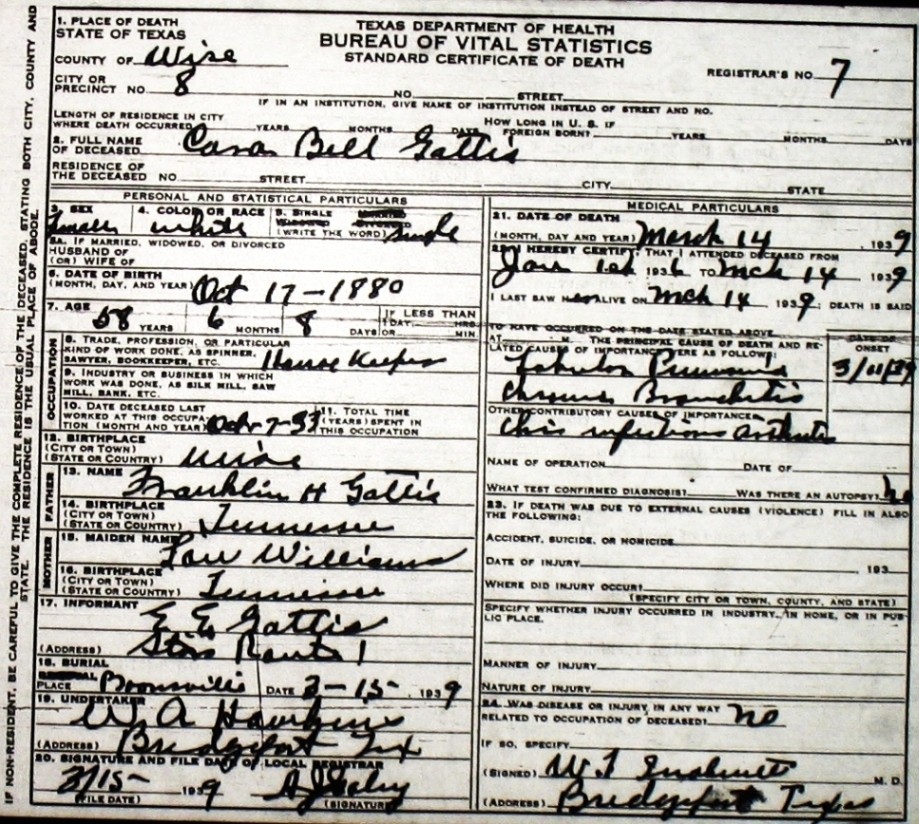 IF NON-RESIDENT, BE CAREFUL TO GIVE THE COMPLETE RESIDENCE OF THE DECEASED, STATING BOTH CITY, COUNTY AND
STATE. THE RESIDENCE IS THE USUAL PLACE OF ABODE.
TEXAS DEPARTMENT OF HEALTH
BUREAU OF VITAL STATISTICS
STANDARD CERTIFICATE OF DEATH
1. PLACE OF DEATH
STATE OF TEXAS
COUNTY OF Wise
REGISTRAR'S NO. 7
CITY OR
PRECINCT NO. 8 NO. STREET
IF IN AN INSTITUTION, GIVE NAME OF INSTITUTION INSTEAD OF STREET AND NO.
LENGTH OF RESIDENCE IN CITY
WHERE DEATH OCCURRED YEARS MONTHS DAYS HOW LONG IN U. S. IF FOREIGN BORN? YEARS MONTHS DAYS
2. FULL NAME
OF DECEASED Bell Gattis
RESIDENCE OF
THE DECEASED NO. STREET CITY STATE
PERSONAL AND STATISTICAL PARTICULARS
3. SEX 4. COLOR OR RACE white 5. SINGLE MARRIED WIDOWED DIVORCED (WRITE THE WORD) Single
5A. IF MARRIED, WIDOWED, OR DIVORCED
HUSBAND OF
(OR) WIFE OF
6. DATE OF BIRTH
(MONTH, DAY, AND YEAR) Oct 17-1880
7. AGE 58 YEARS 6 MONTHS 8 DAYS IF LESS THAN 1 DAY HRS OR MIN
OCCUPATION
8. TRADE, PROFESSION, OR PARTICULAR
KIND OF WORK DONE, AS SPINNER,
SAWYER, BOOKKEEPER, ETC. House Keeper
9. INDUSTRY OR BUSINESS IN WHICH
WORK WAS DONE, AS SILK MILL, SAW
MILL, BANK, ETC.
10. DATE DECEASED LAST
WORKED AT THIS OCCUPATION (MONTH AND YEAR)
11. TOTAL TIME (YEARS) SPENT IN THIS OCCUPATION
12. BIRTHPLACE
(CITY OR TOWN)
(STATE OR COUNTRY) Wise
FATHER
13. NAME Franklin H Gattis
14. BIRTHPLACE
(CITY OR TOWN)
(STATE OR COUNTRY) Tennessee
MOTHER
15. MAIDEN NAME Williams
16. BIRTHPLACE
(CITY OR TOWN)
(STATE OR COUNTRY) Tennessee
17. INFORMANT E E Gattis
(ADDRESS) Route 1
18. BURIAL
PLACE Boonsville DATE 3-15- 1939
19. UNDERTAKER W. A Hawkins
(ADDRESS) Bridgeport Tex
20. SIGNATURE AND FILE DATE OF LOCAL REGISTRAR
3/15- 1939
(FILE DATE) (SIGNATURE)
MEDICAL PARTICULARS
21. DATE OF DEATH
(MONTH, DAY AND YEAR) March 14 1939
22. I HEREBY CERTIFY, THAT I ATTENDED DECEASED FROM
Jan 1st 1936 TO Mch 14 1939
I LAST SAW ALIVE ON Mch 14 1939; DEATH IS SAID
TO HAVE OCCURRED ON THE DATE STATED ABOVE
AT M. THE PRINCIPAL CAUSE OF DEATH AND RELATED CAUSES OF IMPORTANCE WERE AS FOLLOWS:
DATE OF ONSET
Lobular Pneumonia 3/11/39
Chronic Bronchitis
OTHER CONTRIBUTORY CAUSES OF IMPORTANCE
infectious arthritis
NAME OF OPERATION DATE OF
WHAT TEST CONFIRMED DIAGNOSIS? WAS THERE AN AUTOPSY? no
23. IF DEATH WAS DUE TO EXTERNAL CAUSES (VIOLENCE) FILL IN ALSO
THE FOLLOWING:
ACCIDENT, SUICIDE, OR HOMICIDE
DATE OF INJURY 193
WHERE DID INJURY OCCUR?
(SPECIFY CITY OR TOWN, COUNTY, AND STATE)
SPECIFY WHETHER INJURY OCCURRED IN INDUSTRY, IN HOME, OR IN PUBLIC PLACE.
MANNER OF INJURY
NATURE OF INJURY
24. WAS DISEASE OR INJURY IN ANY WAY
RELATED TO OCCUPATION OF DECEASED? no
IF SO, SPECIFY
(SIGNED) W. M. D.
(ADDRESS) Bridgeport Texas